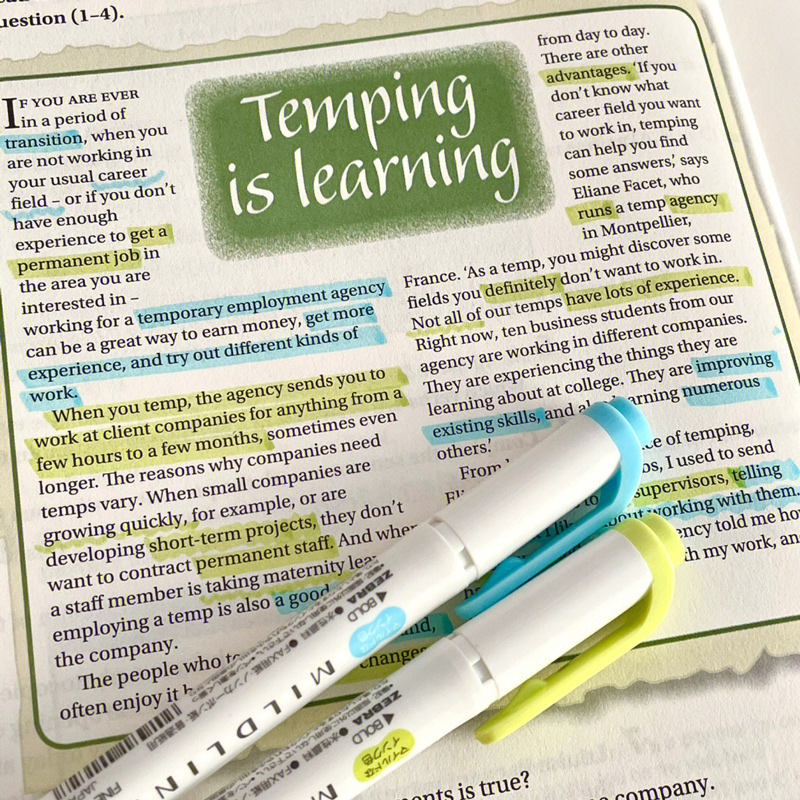 uestion (1–4).
Temping
is learning
IF YOU ARE EVER
in a period of
transition, when you
are not working in
your usual career
field – or if you don't
have enough
experience to get a
permanent job in
the area you are
interested in –
working for a temporary employment agency
can be a great way to earn money, get more
experience, and try out different kinds of
work.
When you temp, the agency sends you to
work at client companies for anything from a
few hours to a few months, sometimes even
longer. The reasons why companies need
temps vary. When small companies are
growing quickly, for example, or are
developing short-term projects, they don't
want to contract permanent staff. And when
a staff member is taking maternity
employing a temp is also a good
the company.
The people who
often enjoy it
from day to day.
There are other
advantages. 'If you
don't know what
career field you want
to work in, temping
can help you find
some answers,' says
Eliane Facet, who
runs a temp agency
in Montpellier,
France. 'As a temp, you might discover some
fields you definitely don't want to work in.
Not all of our temps have lots of experience.
Right now, ten business students from our
agency are working in different companies.
They are experiencing the things they are
learning about at college. They are improving
existing skills, and numerous
others.'
From of temping,
I used to send
to supervisors, telling
about working with them.
told me
my work, and
and,
changes
ZEBRA BOLD
マイルドな
インク色
MILDLIN
ZEBRA BOLD
マイルドな
インク色
M
ents is true?
e company.